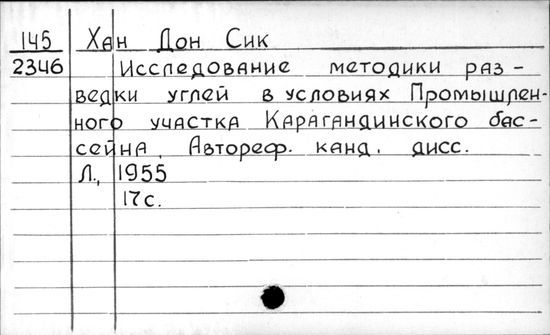 145 Хан Дон Сик
2346 Исследование методики раз-
ведки углей в условиях Промышлен-
ного участка Карагандинского бас-
сейна. Автореф. канд. дисс.
Л., 1955
17с.